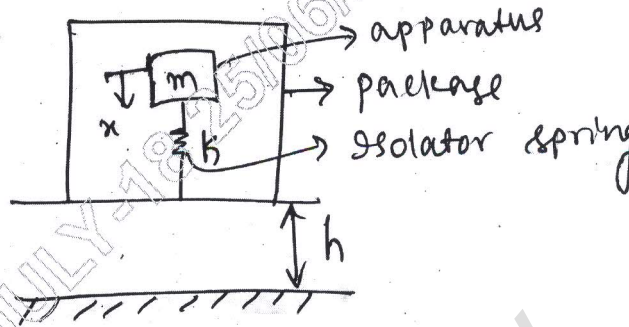 apparatus
m
package
x
k
Isolator spring
h
JULY-18 25/06/